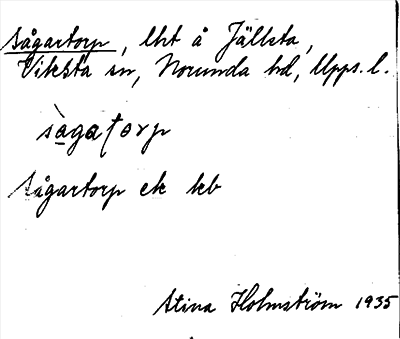 Sågartorp, lht å Jällsta,
Viksta sn, Norunda hd, Upps. l.
sàgato̧rp
Sågartorp ek kb
Stina Holmström 1935